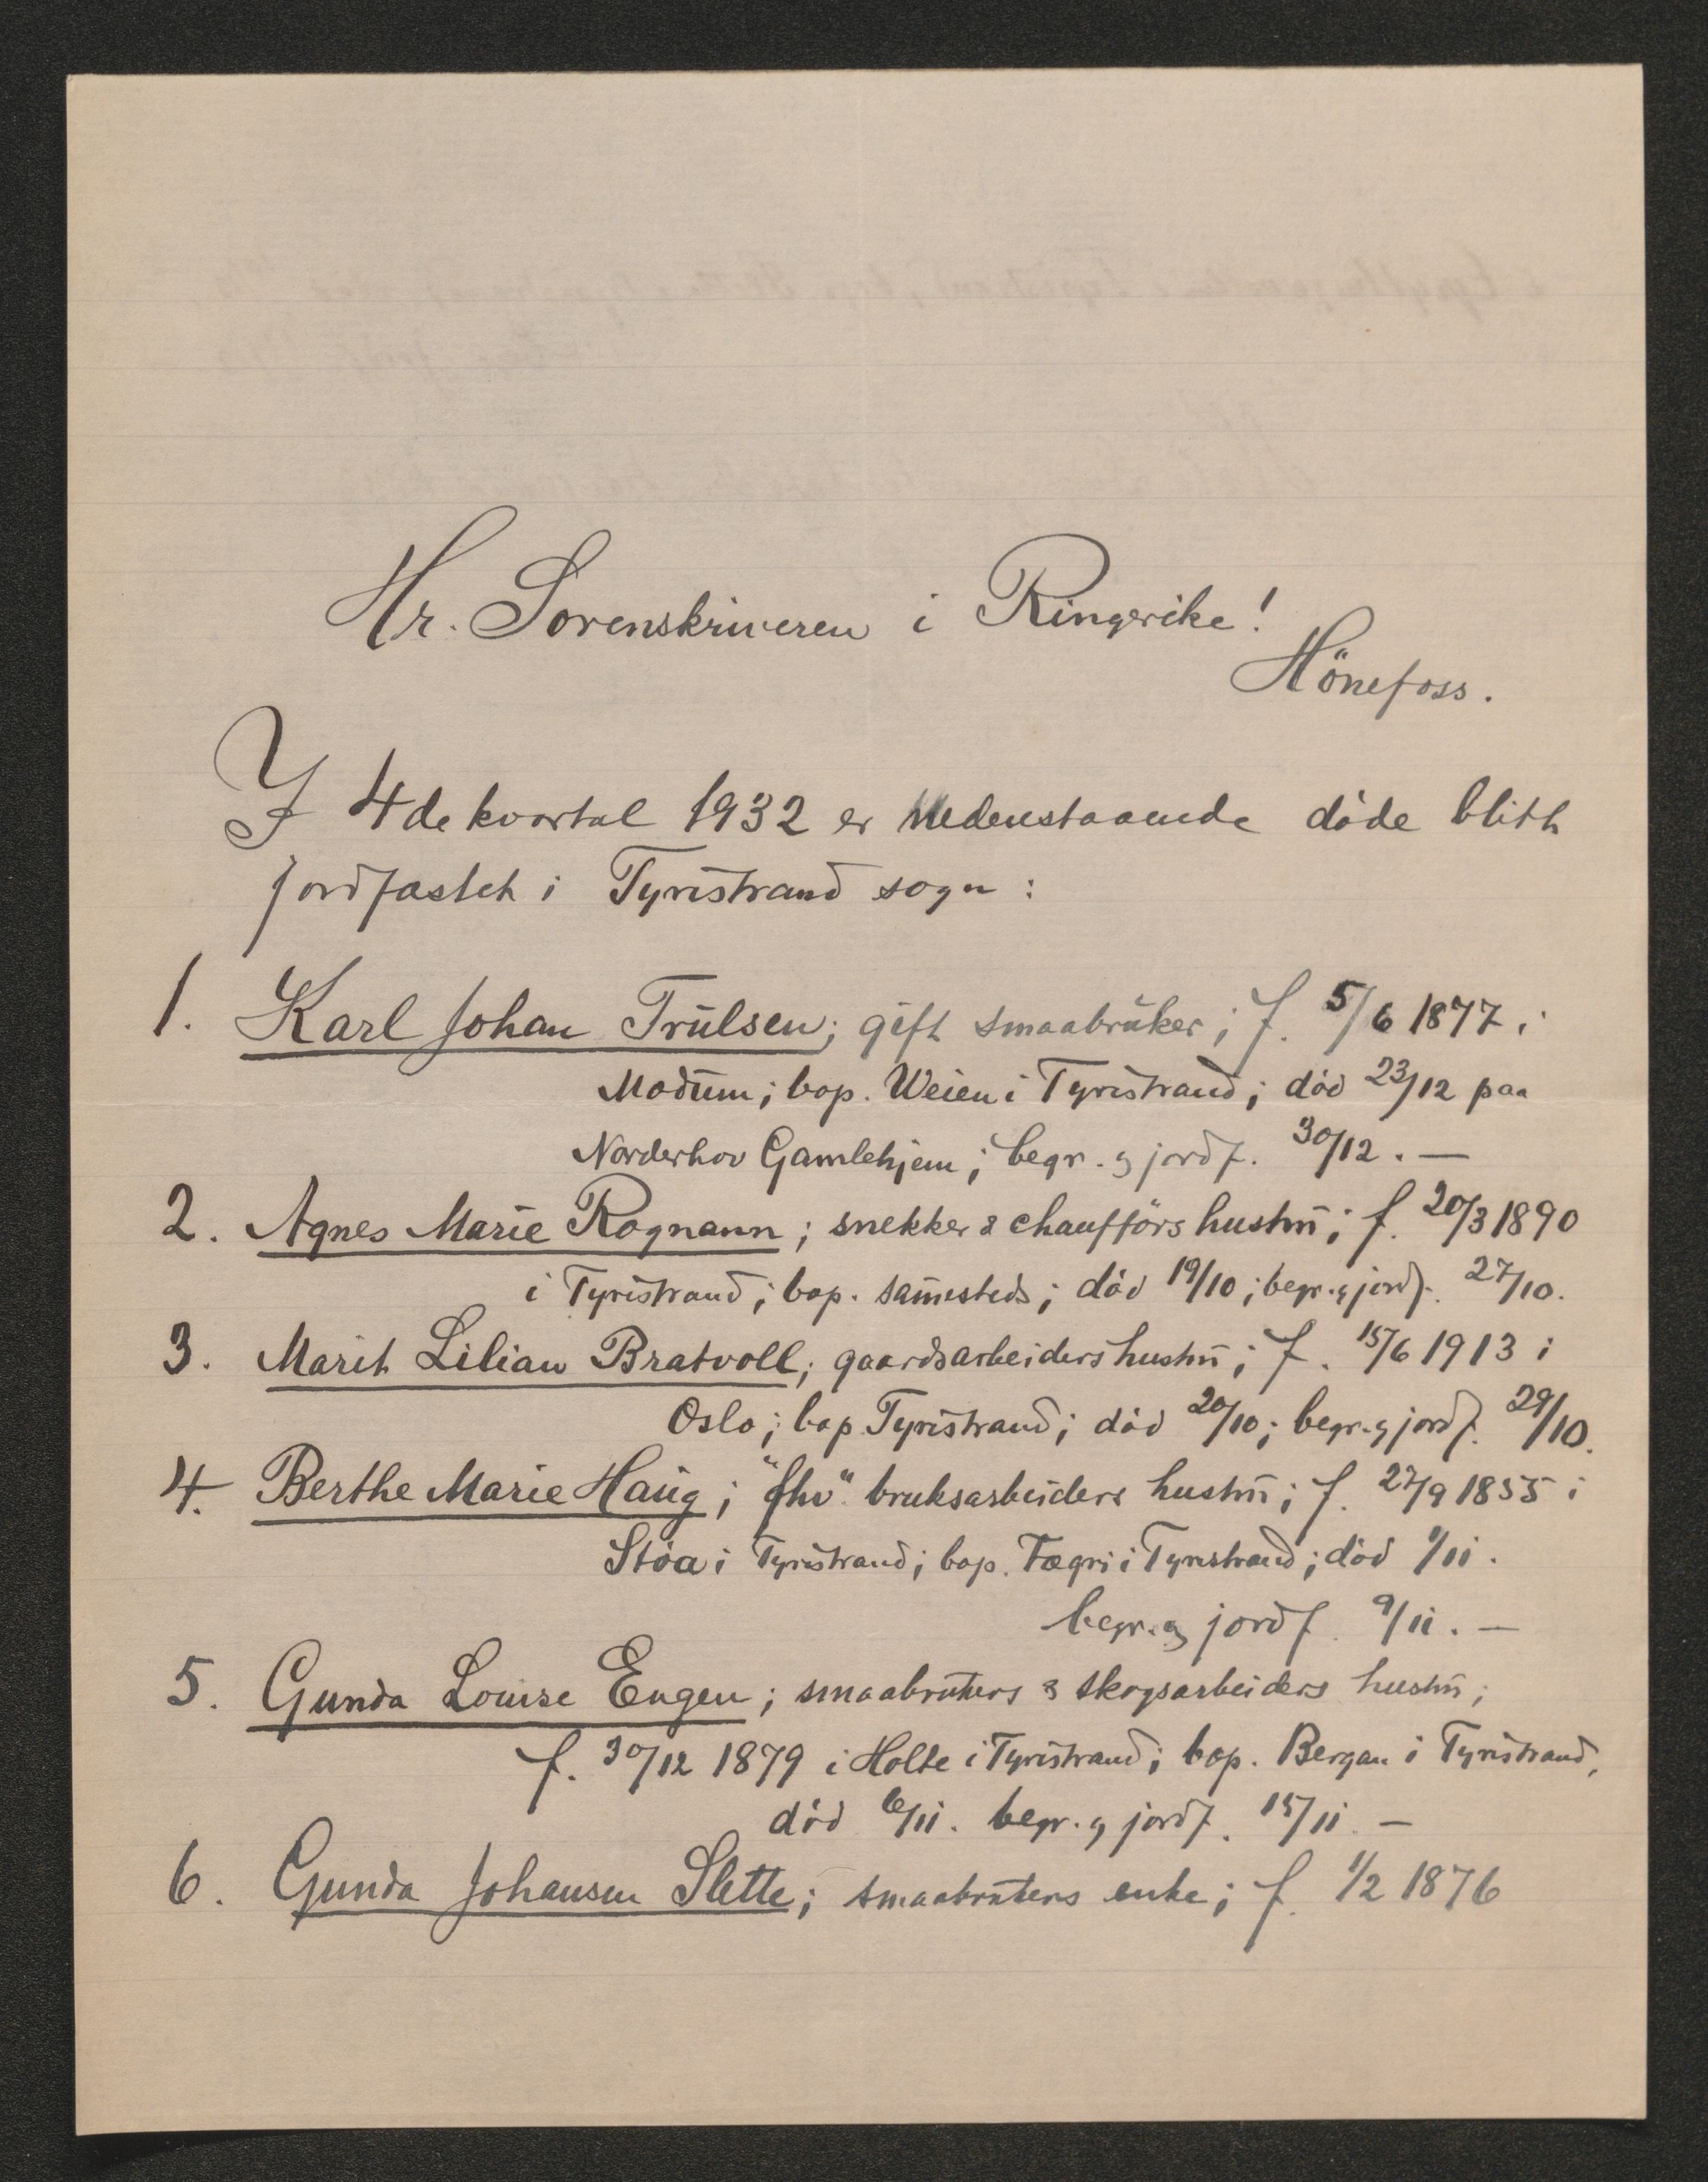 Hr. Sorenskriveren i Ringerike!
Hönefoss.
I 4de kvartal 1932 er nedenstaaende döde blith
jordfastet i Tyristrand sogn:
1. Karl Johan Trulsen; gift smaabruker; f. 5/6 1877 i
Modum; bop. Weien i Tyristrand; död 23/12 paa
Norderhov Gamlehjem; begr. og jordf. 30/12. —
2. Agnes Marie Rognann; snekker & chaufförs hustru; f. 20/3 1890
i Tyristrand; bop. sammesteds; död 19/10; begr. og jordf. 27/10.
3. Marit Lilian Bratvoll; gaardsarbeiders hustru; f. 15/6 1913 i
Oslo; bop Tyristrand; död 20/10; begr. og jordf. 29/10.
4. Berthe Marie Haug; "fhv". bruksarbeiders hustru; f. 27/9 1855 i
Stöa i Tyristrand; bop. Fægri i Tyristrand; död 1/11.
begr. og jordf. 9/11. —
5. Gunda Louise Engen; smaabrukers & skogsarbeiders hustru;
f. 30/12 1879 i Holte i Tyristrand; bop. Bergan i Tyristrand,
död 6/11. begr. og jordf. 15/11. —
6. Gunda Johansen Slette; smaabrukers enke; f. 1/2 1876